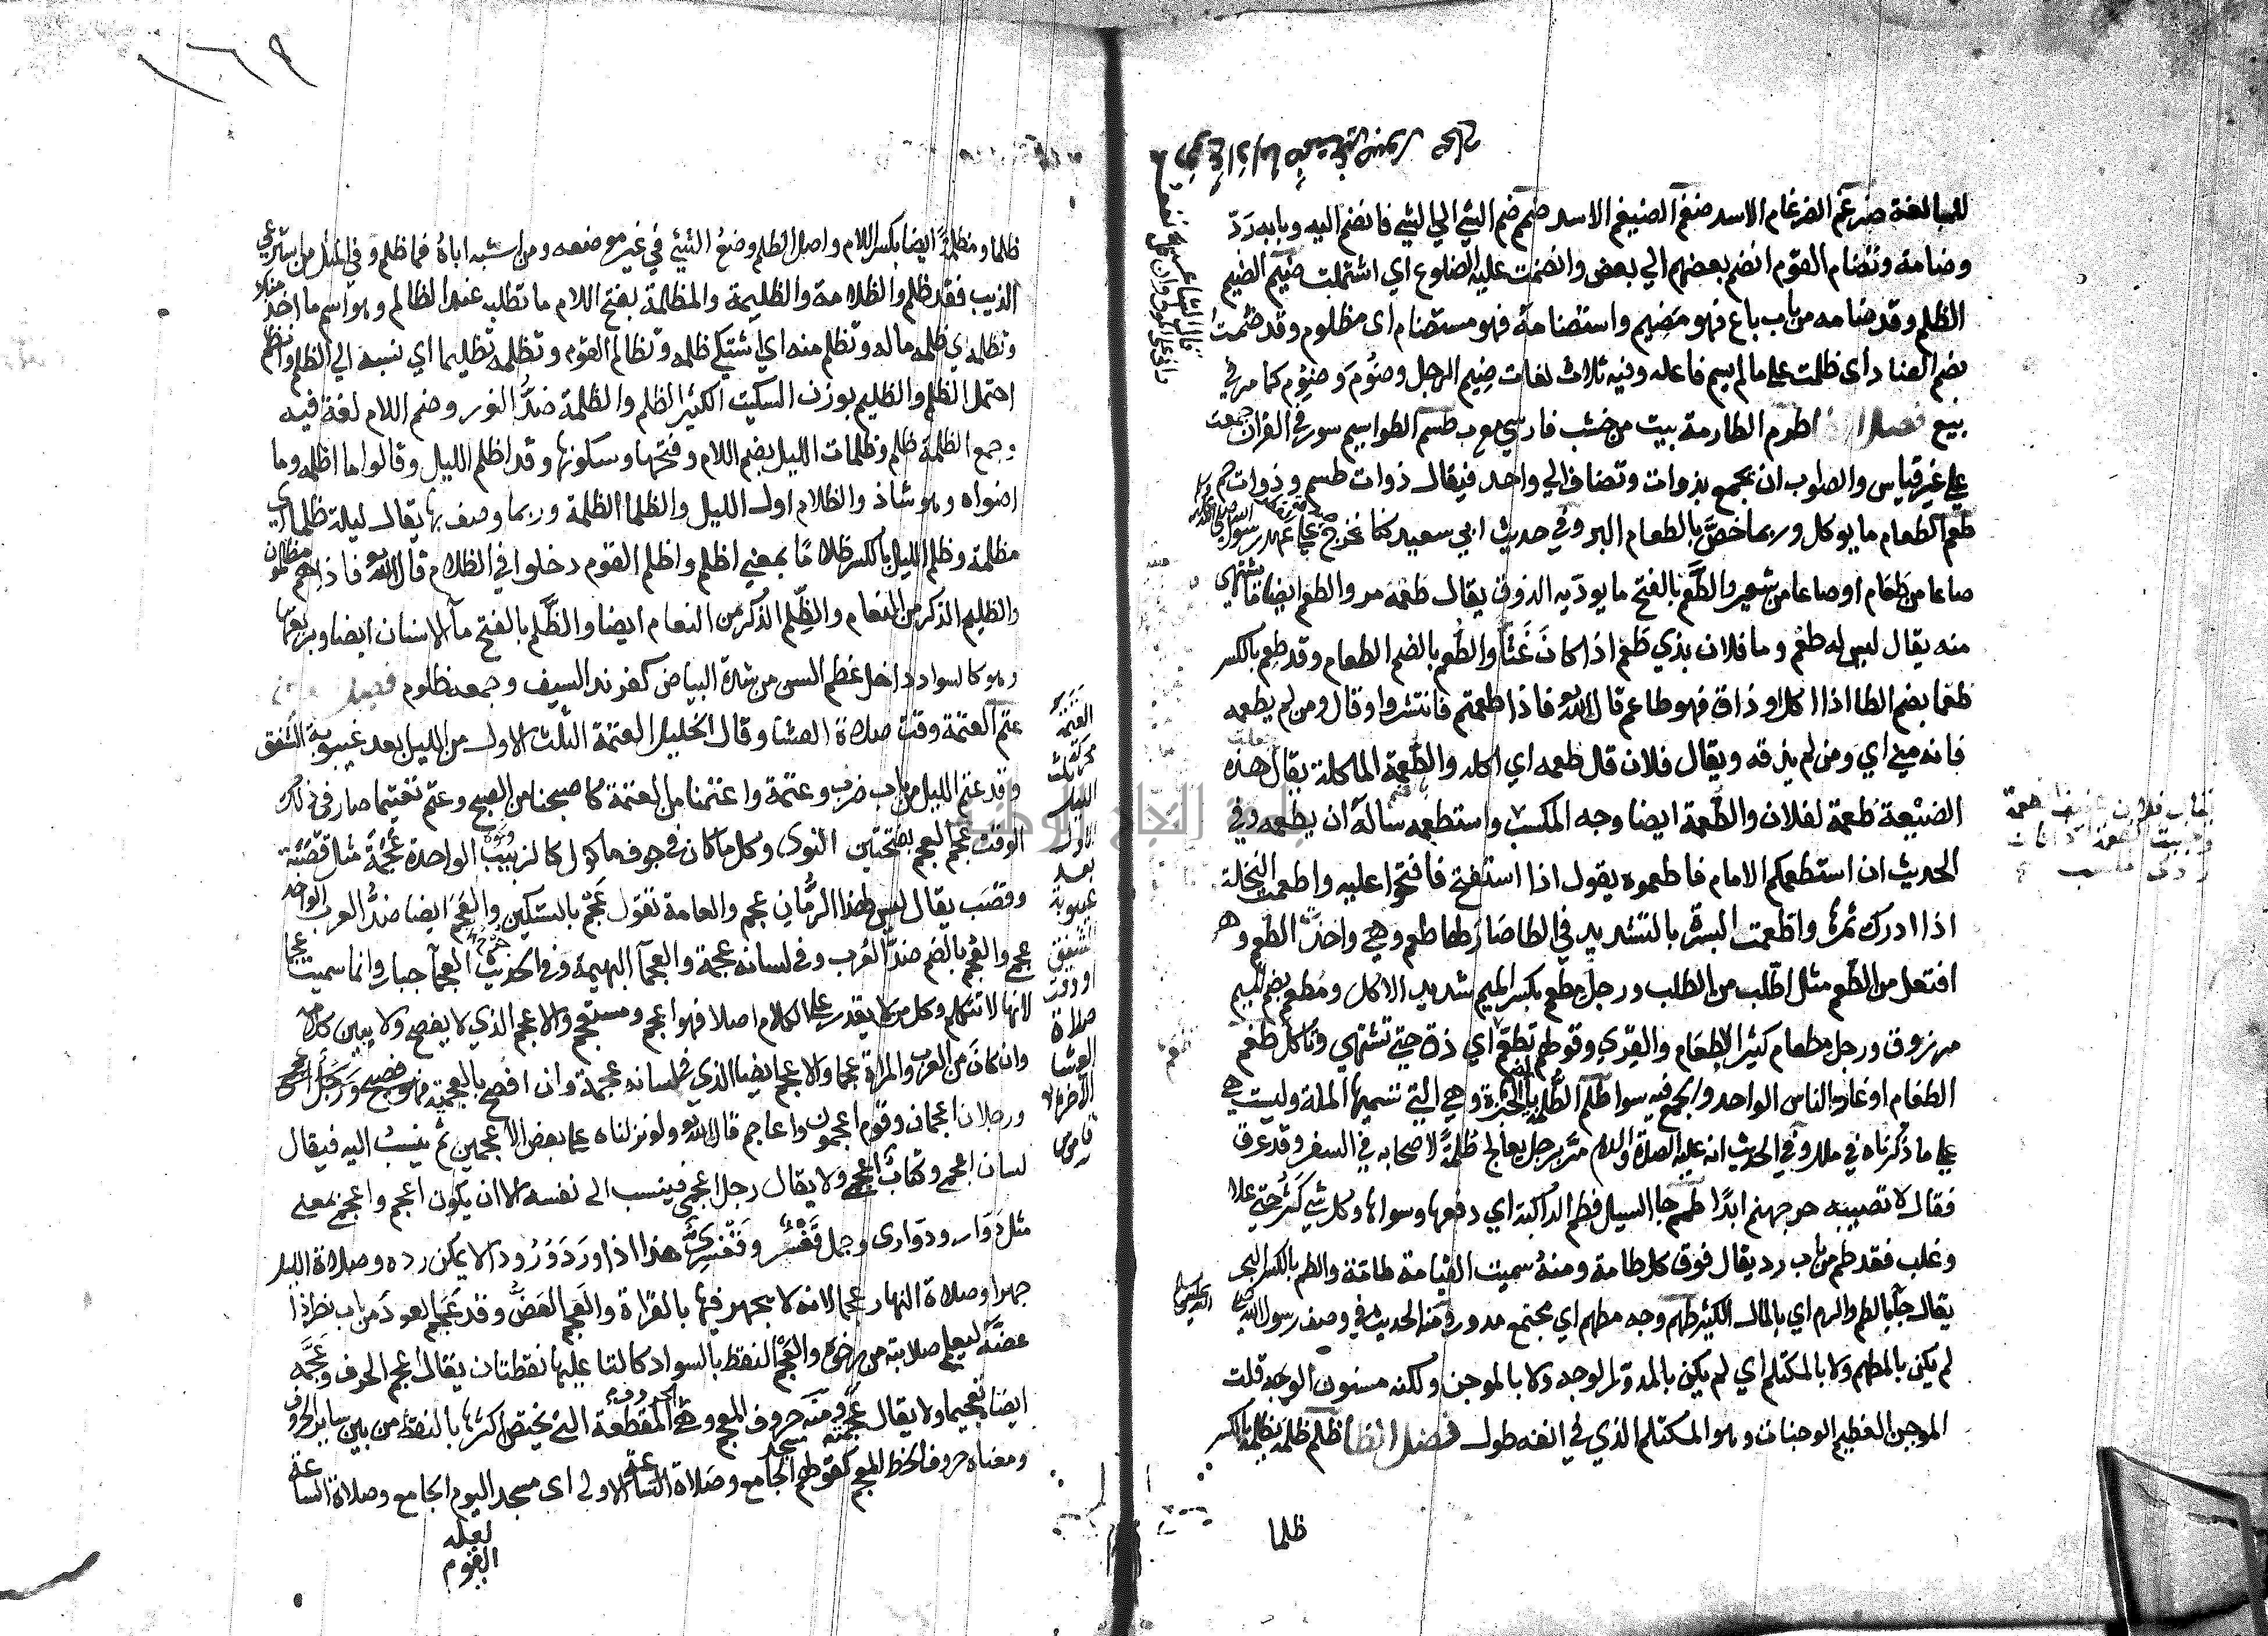 للمبالغة ضرغم الضرغام الاسد ضغم الضيغم الاسد ضمم ضم الشي الي الشي فانضم اليه وبابه رد
وضامه وتضام القوم انضم بعضهم الي بعض وانضمت عليه الضلوع اي اشتملت ضيم الضيم
الظلم وقد ضامه من باب باع فهو مضيم واستضامه فهو مستضام اى مظلوم وقد ضمت
بضم الضاد اى ظلمت علي ما لم يسم فاعله وفيه ثلاث لغات ضيم الرجل وضوم وضيوم كما مر في
بيع فصل اطرم الطارمة بيت من خشب فارسي معرب طسم الطواسيم سور في القران جمعت
علي غير قياس والصواب ان تجمع بذوات وتضاف الي واحد فيقال ذوات طسم وذوات حم
طعم الطعام ما يوكل وربما خص بالطعام البر وفي حديث ابي سعيد كنا نخرج علي عهد رسول الله
صاعا من طعام او صاعا من شعير والطعم بالفتح ما يوديه الذوق يقال طعمه مر والطعم ايضا ما يشتهى
منه يقال ليس له طعم وما فلان بذي طعم اذا كان غثا والطعم بالضم الطعام وقد طعم بالكسر
طعما بضم الطا اذا اكل او ذاق فهو طاعم قال الله فاذا طعمتم فانتشروا وقال ومن لم يطعمه
فانه مني اي ومن لم يذقه ويقال فلان قل طعمه اي اكله والطعمة الماكلة يقال جعلت هذه
الضيعة طعمة لفلان والطعمة ايضا وجه المكسب واستطعمه ساله ان يطعمه وفي
الحديث ان استطعمكم الامام فاطعموه يقول اذا استفتح فافتحوا عليه واطعمت النخلة
اذا ادرك ثمرها واطعمت البسرة بالتشديد في الطا صار لها طعم وهي واخذت الطعم وهو
افتعل من الطعم مثل اطلب من الطلب ورجل مطعم بكسر الميم شديد الاكل ومطعم بضم الميم
مرزوق ورجل مطعام كثير الاطعام والقري وقولهم تطعم تطعم اي ذق حتي تشتهي وتاكل طغم
الطغام اوغاد الناس الواحد والجمع فيه سوا طلم الطلمة بالضم الخبزة وهي التي تسميها الملة وليست هي
علي ما ذكرناه في ملل وفي الحديث انه عليه الصلاة والسلام مر برجل يعالج طلمة لاصحابه في السفر وقد عرق
فقال لا تصيبه حر جهنم ابدا طمم جا السيل فطم الركبة اي دفنها وسواها وكل شي كثر حتي علا
وغلب فقد طم من باب رد يقال فوق كل طامة طامة ومنه سميت القيامة طامة والطم بالكسر البحر
يقال جا بالطم والرم اي بالمال الكثير طهم وجه مطهم اي مجتمع مدور ومنه الحديث في وصف رسول الله
لم يكن بالمطهم ولا بالمكلثم اي لم يكن بالمدور الوجه ولا بالموجن ولكنه مسنون الوجه قلت
الموجن العظيم الوجنات وهو المكلثم الذي في انفه طول فصل الظا ظلم ظلمه يظلمه بالكسر
ظلما
١٦٩
ظلما ومظلمة ايضا بكسر اللام واصل الظلم وضع الشيئ في غير موضعه ومن اشبه اباه فما ظلم وفي المثل من استرعي
الذيب فقد ظلم والظلامة والظليمة والمظلمة بفتح اللام ما تطلبه عند الظالم وهو اسم ما اخذ منك
وتظلمه اي ظلمه ماله وتظلم منه اي اشتكي ظلمه وتظالم القوم وتظلمه تظليما اي نسبه الي الظلم وانظلم
احتمل الظلم والظليم بوزن السكيت الكثير الظلم والظلمة ضد النور وضم اللام لغة فيه
وجمع الظلمة ظلم وظلمات الليل بضم اللام وفتحها وسكونها وقد اظلم الليل وقالوا ما اظلمه وما
اضواه وهو شاذ والظلام اول الليل والظلما الظلمة وربما وصف بها يقال ليلة ظلما اي
مظلمة وظلم الليل بالكسر ظلاما بمعني اظلم واظلم القوم دخلوا في الظلام قال الله فاذاهم مظلمون
والظليم الذكر من النعام والظلم الذكر من النعام ايضا والظلم بالفتح ما الاسنان ايضا وبريقها
وهو كالسواد داخل عظم السن من شدة البياض كفرند السيف وجمعه ظلوم فصل
عتم العتمة وقت صلاة العشا وقال الخليل العتمة الثلث الاول من الليل بعد غيبوبة الشفق
وقد عتم الليل من باب ضرب وعتمة واعتمنا من العتمة كاصبحنا من الصبح وعتم تعتيما صار في ذلك
الوقت عجم العجم بفتحتين النوى وكل ما كان في جوف ماكول كالزبيب الواحدة عجمة مثل قصبة
وقصب يقال ليس لهذا الرمان عجم والعامة تقول عجم بالتسكين والعجم ايضا ضد العرب الواحد
عجمي والعجم بالضم ضد العرب وفي لسانه عجمة والعجما البهيمة وفي الحديث جرح العجما جبار وانما سميت عجما
لانها لا تتكلم وكل من لا يقدر علي الكلام اصلا فهو اعجم ومستعجم والاعجم الذي لا يفصح ولا يبين كلامه
وان كان من العرب والمراة عجما والاعجم ايضا الذي في لسانه عجمة وان افصح بالعجمية ورجل اعجم
ورجلان اعجمان وقوم اعجمون واعاجم قال الله ولو نزلناه علي بعض الاعجمين ثم ينسب اليه فيقال
لسان اعجمي وكتاب اعجمي ولا يقال رجل اعجمي فينسب الى نفسه الا ان يكون اعجم واعجمي بمعني
مثل دوار ودوارى وجمل قعسر وقعسرى هذا اذا ورد ورودا لا يمكن رده وصلاة الليل
جهرا وصلاة النهار عجما لانه لا يجهر فيها بالقراة والعجم العض وقد عجم العود من باب نصر اذا
عضه ليعلم صلابته من رخوه والعجم النقط بالسواد كالتا عليها نقطتان يقال اعجم الحرف وعجمه
ايضا تعجيما ولا يقال عجمه ومنه حروف المعجم وهي الحروف المقطعة التي يختص اكثرها بالنقط من بين ساير الحروف
ومعناه حروف الخط المعجم كقولهم مسجد الجامع وصلاة الاولى اى مسجد اليوم الجامع وصلاة الساعة
لعله
القوم
العتمة
محركة ثلث
الليل
الاول
بعد
غيبوبة
الشفق
او وقت
صلاة
العشا
الاخرة
قاموس